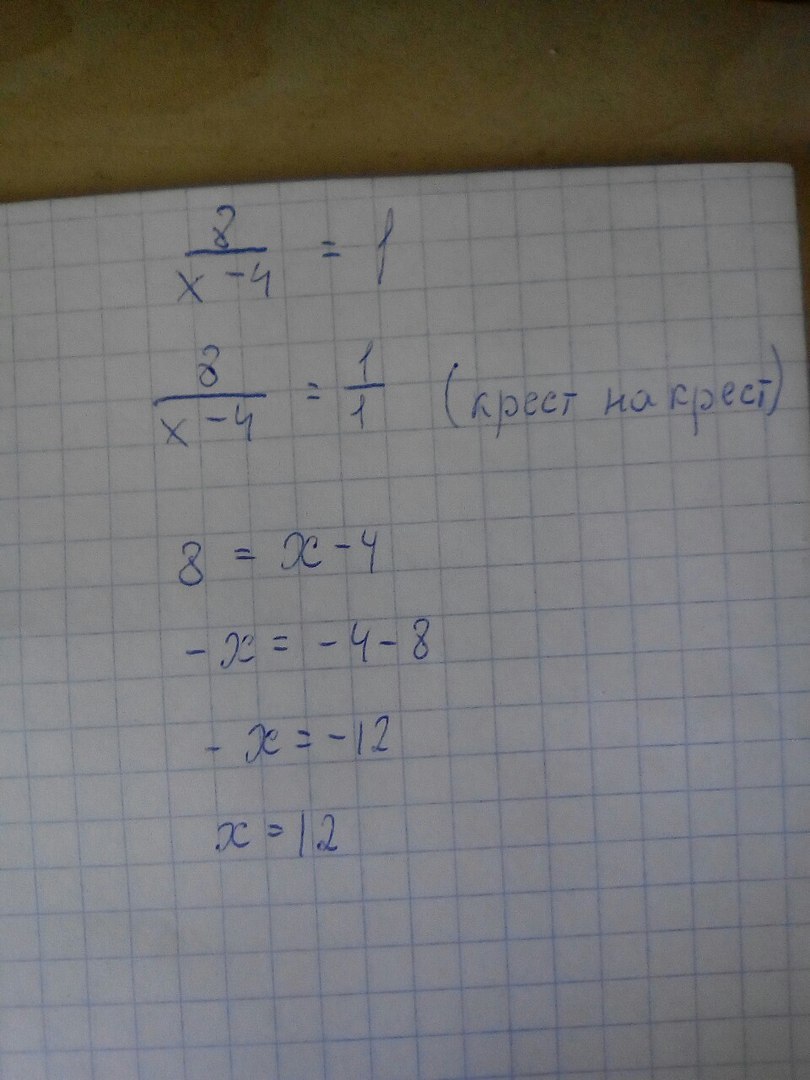 8/(x-4) = 1
8/(x-4) = 1/1 (крест на крест)
8 = x-4
-x = -4-8
-x = -12
x = 12